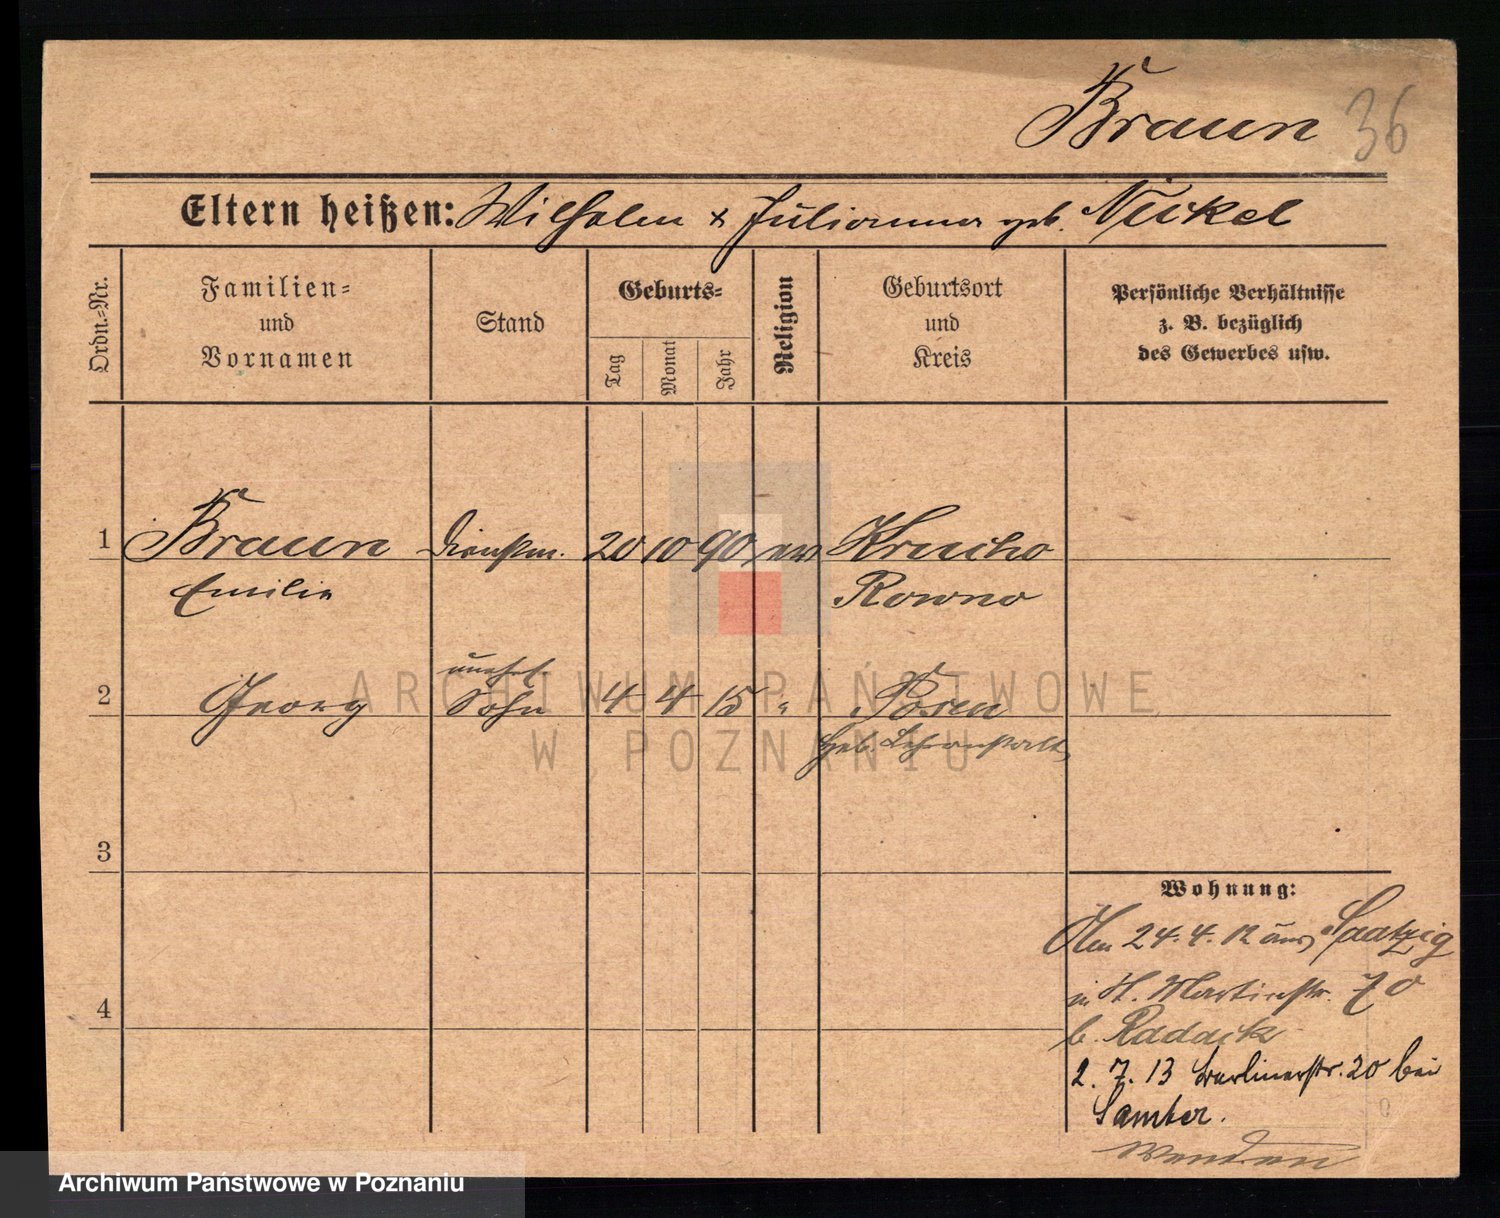 Braun 36
Eltern heißen: Wilhelm & Julianna geb. Nickel
Ordn.-Nr.
Familien-
und
Vornamen
Stand
Geburts-
Tag
Monat
Jahr
Religion
Geburtsort
und
Kreis
Persönliche Verhältnisse
z. B. bezüglich
des Gewerbes usw.
1 Braun Dienstm. 20 10 90 ev Krucho
Emilie Rowno
unehel.
2 Georg Sohn 4 4 15 " Posen
Heb. Lehranstalt
3
4
Wohnung:
Am 24. 4. 12 aus Saatzig
in St. Martinstr. 70
b. Radack
2. 7. 13 Berlinerstr. 20 bei
Samter.
wenden
ARCHIWUM PAŃSTWOWE
W POZNANIU
Archiwum Państwowe w Poznaniu